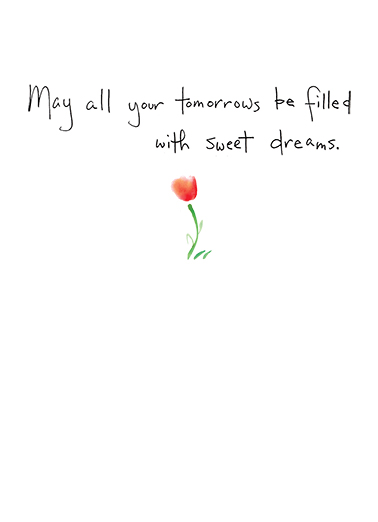 May all your tomorrows be filled
with sweet dreams.